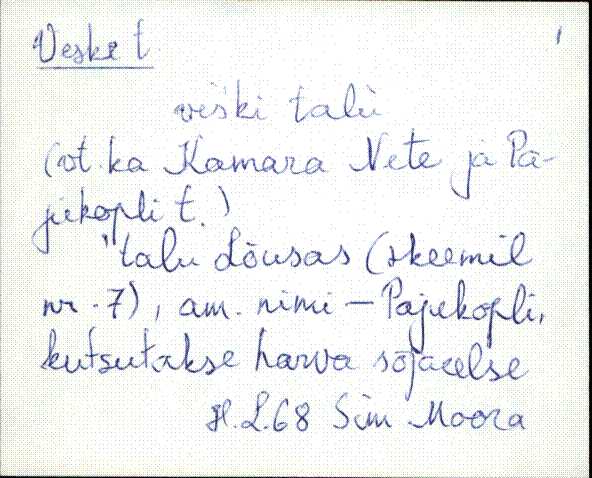 Veske t. 1
veski talu
(vt. ka Kamara Nete ja Pa-
jukopli t.)
talu Lõusas (skeemil
nr. 7), am. nimi – Pajukopli,
kutsutakse harva sõjaeelse
H. L. 68 Sim Moora